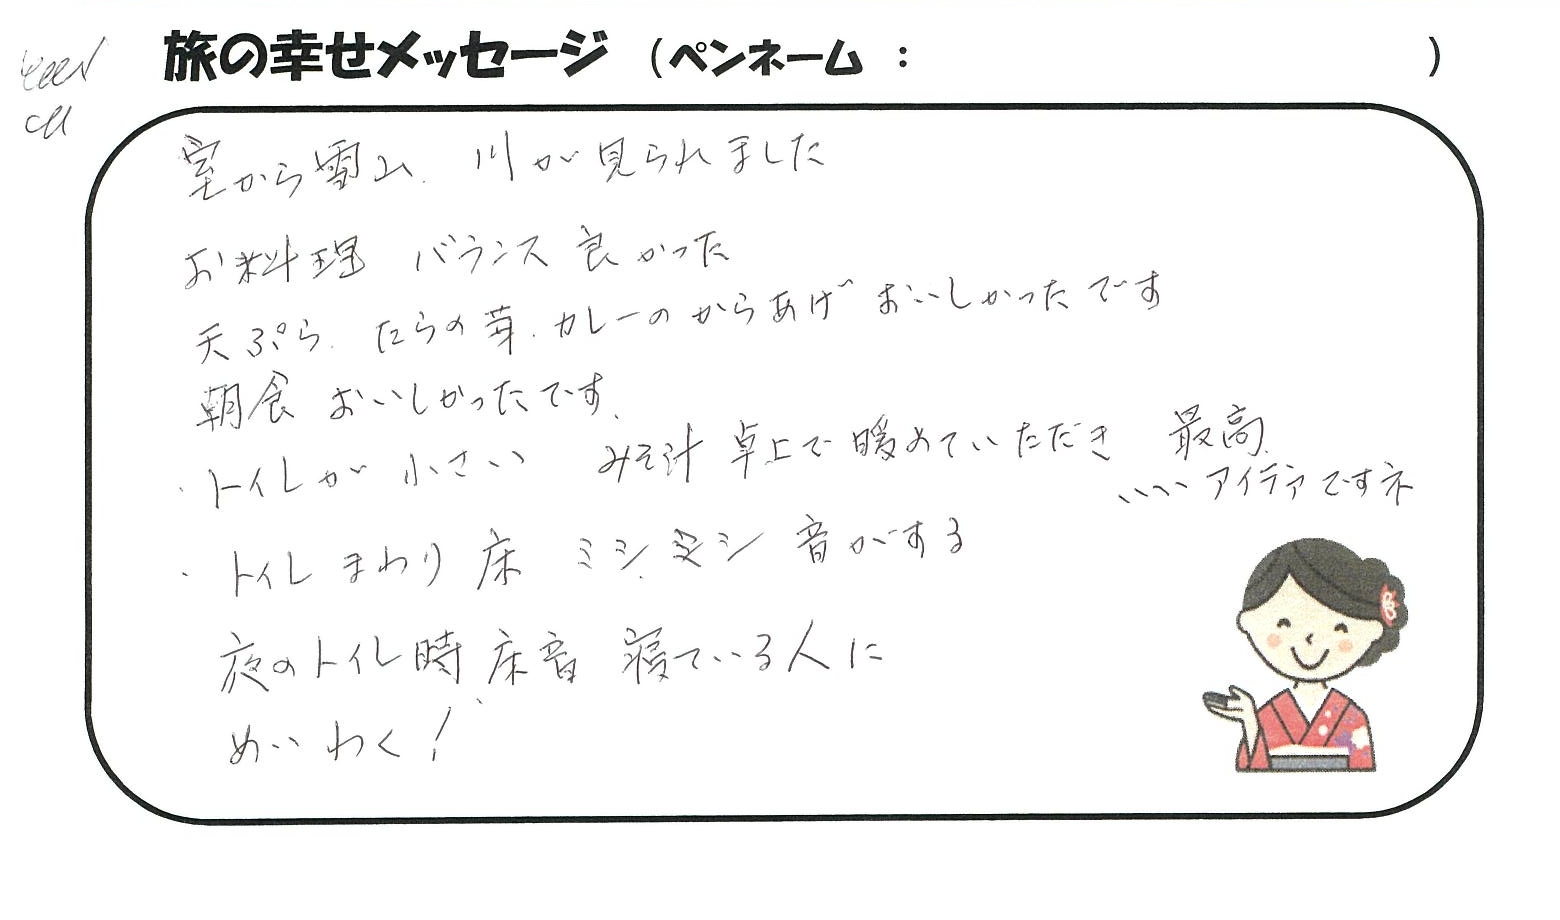 旅の幸せメッセージ （ペンネーム ： ）
室から雪山、川が見られました
お料理 バランス良かった
天ぷら、たらの芽、カレーのからあげ おいしかったです
朝食 おいしかったです、
・トイレが小さい みそ汁 卓上で暖めていただき 最高、
いいアイデアですネ
・トイレまわり 床 ミシミシ 音がする
夜のトイレ時 床音 寝ている人に
めいわく！